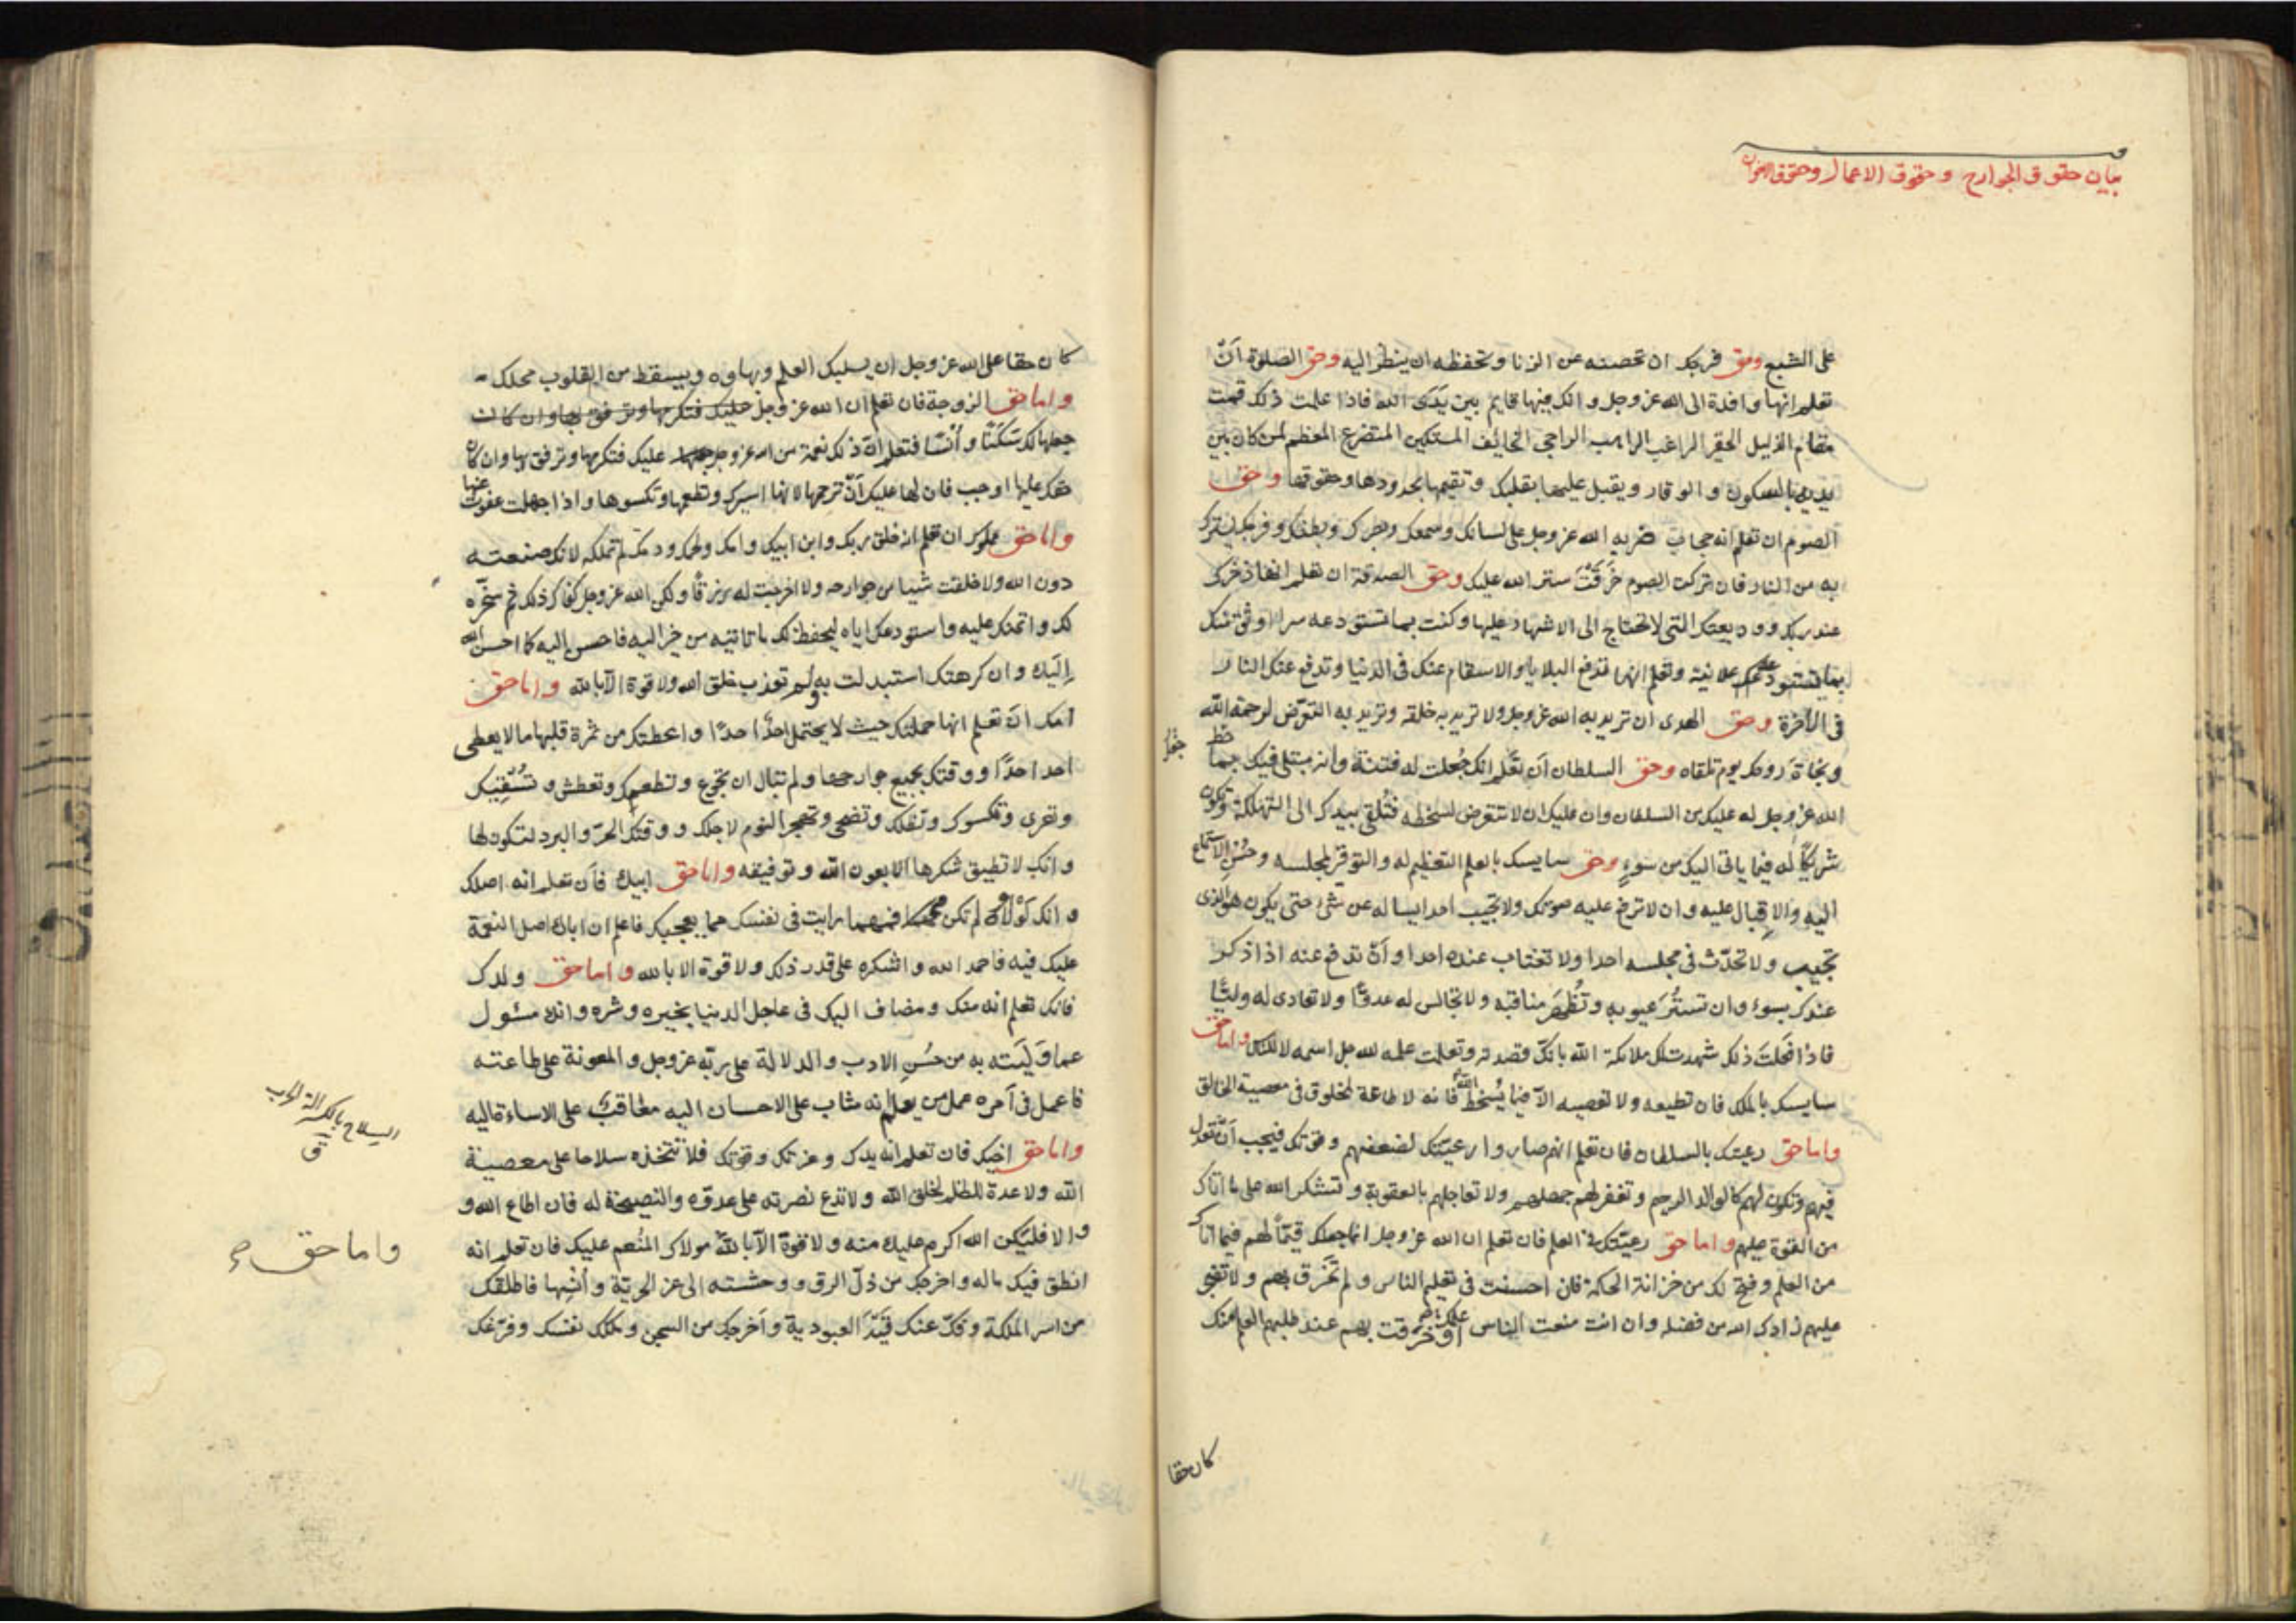 بيان حقوق الجوارح وحقوق الاعمال وحقوق الاخوان
على الشبع وحق فرجك ان تحصنه عن الزنا وتحفظه ان ينظر اليه وحق الصلوة أنْ
تعلم انها وافدة الى الله عز وجل وانك فيها قايم بين يَدَى الله فاذا علمت ذلك قمت
مقام الذليل الحقير الراغب الراهب الراجي الخائف المستكين المتضرع المعظم لمن كان بين
يديه بالسكون والوقار ويقبل عليها بقلبك وتقيمها بحدودها وحقوقها وحق
الصوم ان تعلم انه حجاب ضربه الله عز وجل على لسانك وسمعك وبصرك وبطنك وفرجك ليسترك
به من النار فان تركت الصوم خَرَقْتَ ستر الله عليك وحق الصدقة ان تعلم انها ذخرك
عند ربك ووديعتك التي لا تحتاج الى الاشهاد عليها وكنت بما تستودعه سرا اوثق منك
بما تستودعه علانية وتعلم انها تدفع البلايا والاسقام عنك في الدنيا وتدفع عنك النار
في الآخرة وحق الهدى ان تريد به الله عز وجل ولا تريد به خلقه وتريد به التعرّض لرحمة الله
ونجاة روحك يوم تلقاه وحق السلطان أن تعلم انك جُعلت له فتنة وانه مبتلى فيك بما
جعل خط
الله عز وجل له عليك من السلطان وان عليك ان لا تتعرض لسخطه فتُلقى بيدك الى التهلكة وتكون
شريكًا له فيما ياتى اليك من سوءٍ وحق سايسك بالعلم التعظيم له والتوقير لمجلسه وحُسْن الاستماع
اليه والاِقبال عليه وان لا ترفع عليه صوتك ولا تجيب احدا يساله عن شئ حتى يكون هو الذى
تجيب ولا تحدّث في مجلسه احدا ولا تغتاب عنده احدا وأنْ تدفع عنه اذا ذكر
عندك بسوء وان تستُرَ عيوبه وتُظْهِرَ مناقبه ولا تجالس له عدوًّا ولا تعادى له وليًّا
فاذا فَعَلتَ ذلك شهدت لك ملائكة الله بانّك قصدته وتعلمت علمه لله جل اسمه لا للناس واما حق
سايسك بالملك فان تطيعه ولا تعصيه الاّ فيما يُسْخط الله فانه لا طاعة لمخلوق في معصية الخالق
واما حق رعيتك بالسلطان فان تعلم انهم صاروا رعيتك لضعفهم وقوتك فيجب أنْ تعدل
فيهم وتكون لهم كالوالد الرحيم وتغفر لهم جهلهم ولا تعاجلهم بالعقوبة وتشكر الله على ما اتاك
من القوة عليهم واما حق رعيّتك في العلم فان تعلم ان الله عز وجل انما جعلك قيّمًا لهم فيما اتاك
من العلم وفتح لك من خزانة الحكمة فان احسنت في تعليم الناس ولم تَخْرق بهم ولا تضجر
عليهم زادك الله من فضله وان انت منعت الناس علمك او خرقت بهم عند طلبهم العلم منك
كان حقا
كان حقا على الله عز وجل ان يسلبك العلم وبهاءه ويسقط من القلوب محلك
واما حق الزوجة فان تعلم ان الله عز وجل جعلها عليك فتكرمها وترفق بها وان كانت
جعلها لك سَكَنًا وأُنْسًا فتعلم انّ ذلك نعمة من الله عز وجل عليك فتكرمها وترفق بها وان كان
حقك عليها اوجب فان لها عليك أنْ ترحمها لانها اسيرك وتطعمها وتكسوها واذا جهلت عفوت عنها
واما حق مملوكك ان تعلم انه خلق ربك وابن ابيك وامك ولحمك ودمك لم تملكه لانك صنعته
دون الله ولا خلقت شيا من جوارحه ولا اخرجت له رزقًا ولكن الله عز وجل كفاك ذلك ثم سخّره
لك وائتمنك عليه واستودعك اياه ليحفظ لك ما تاتيه من خير اليه فاحسن اليه كما احسن الله
إليك وان كرهتك استبدلت به ولم تعذب خلق الله ولا قوة الا بالله واما حق
امك أن تعلم انها حملتك حيث لا يحتمل احدٌ احدًا واعطتك من ثمرة قلبها ما لا يعطى
احد احدًا ووقتك بجميع جوارحها ولم تبال ان تجوع وتطعمك وتعطش وتُسْقِيك
وتعرى وتكسوك وتظلك وتضحى وتهجر النوم لاجلك ووقتك الحرّ والبرد لتكون لها
وانك لا تطيق شكرها الا بعون الله وتوفيقه واما حق ابيك فأن تعلم انه اصلك
وانك لَوْلاه لم تكن فمهما رايت في نفسك مما يعجبك فاعلم ان اباك اصل النعمة
عليك فيه فاحمد الله واشكره على قدر ذلك ولا قوة الا بالله واما حق ولدك
فانك تعلم انه منك ومضاف اليك في عاجل الدنيا بخيره وشره وانك مسئول
عما وَلِيتَه به من حُسْنِ الادب والدلالة على ربّه عز وجل والمعونة على طاعته
فاعمل في أمره عمل من يعلم انه مثاب على الاحسان اليه معاقبٌ على الاساءة اليه
واما حق اخيك فان تعلم انه يدك وعزتك وقوتك فلا تتخذه سلاحا على معصية
الله ولا عدة للظلم لخلق الله ولا تدع نصرته على عدوّه والنصيحة له فان اطاع الله و
والا فليكن الله اكرم عليك منه ولا قوة الاّ بالله مولاك المُنعم عليك فان تعلم انه
انطق فيك ماله واخرجك من ذلّ الرق ووحشته الى عز الحريّة وأُنْسِها فاطلقك
من اسر الملكة وفكّ عنك قَيْدَ العبودية وأخرجك من السجن وملكك نفسك وفرّغك
السلاح بالكسر الة الحرب
ق
واما حق